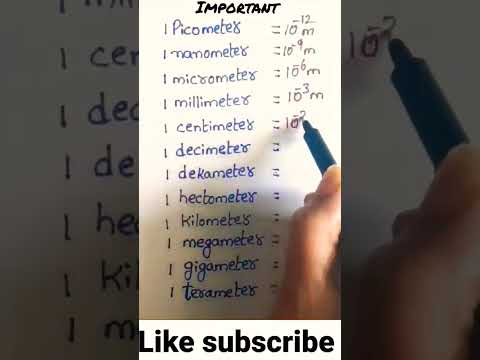 IMPORTANT
1 Picometer = 10⁻¹² m
1 nanometer = 10⁻⁹ m
1 micrometer = 10⁻⁶ m
1 millimeter = 10⁻³ m
1 centimeter = 10⁻²
1 decimeter =
1 dekameter =
1 hectometer =
1 kilometer =
1 megameter =
1 gigameter =
1 terameter =
Like subscribe